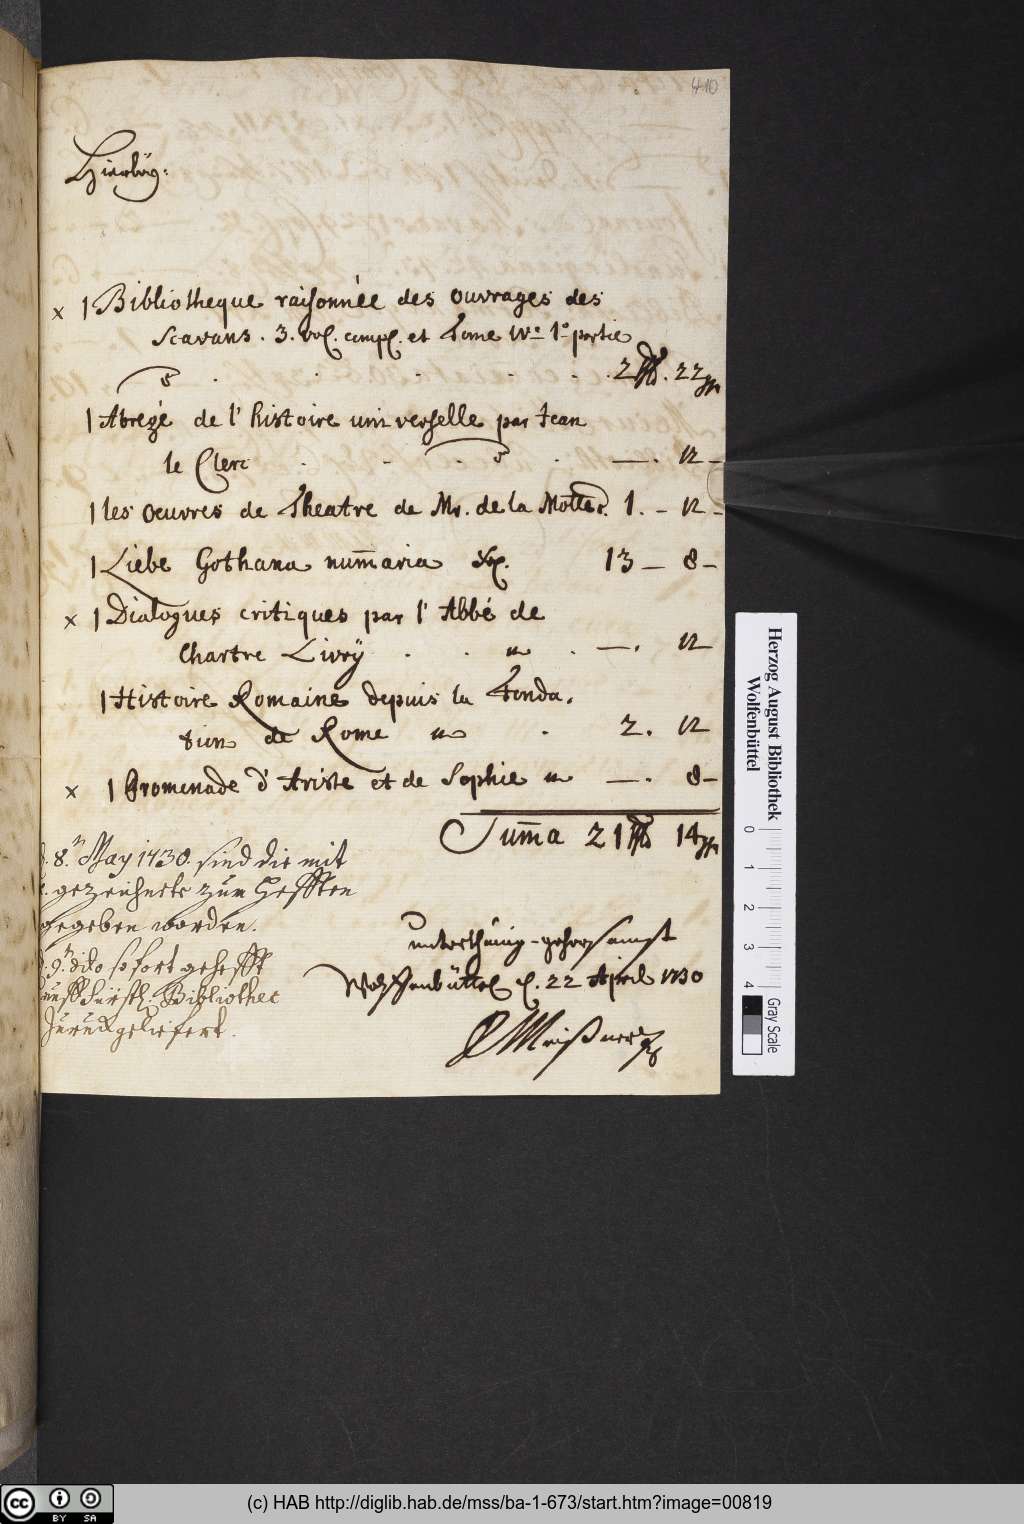 410
Hierbeÿ:
x 1 Bibliotheque raisonnée des ouvrages des
Scavans. 3. vol. compl. et Tome IVe 1e partie
2 22
1 Abregé de l'histoire universelle par Jean
le Clerc — 12 –
1 les oeuvres de Theatre de Mr. de la Motte. 1. – 12 –
1 Liebe Gothana num̄aria 13 – 8 –
x 1 Dialogues critiques par l'Abbé de
Chartre Livrÿ —. 12
1 Histoire Romaine depuis la Fonda,
tion de Rome 2. 12
x 1 Promenade d'Ariste et de Sophie —. 8 –
Sum̄a 21 14
8t May 1730. sind die mit
gezeichnete zum Hefften
gegeben worden.
9t dito sofort gehefft
Fürstl. Bibliothec
Zurück geliefert.
unterthänig-gehorsamst
Wolffenbüttel d. 22 April 1730
Meißner
Herzog August Bibliothek
Wolfenbüttel
0 1 2 3 4
Gray Scale
cc BY SA
(c) HAB http://diglib.hab.de/mss/ba-1-673/start.htm?image=00819